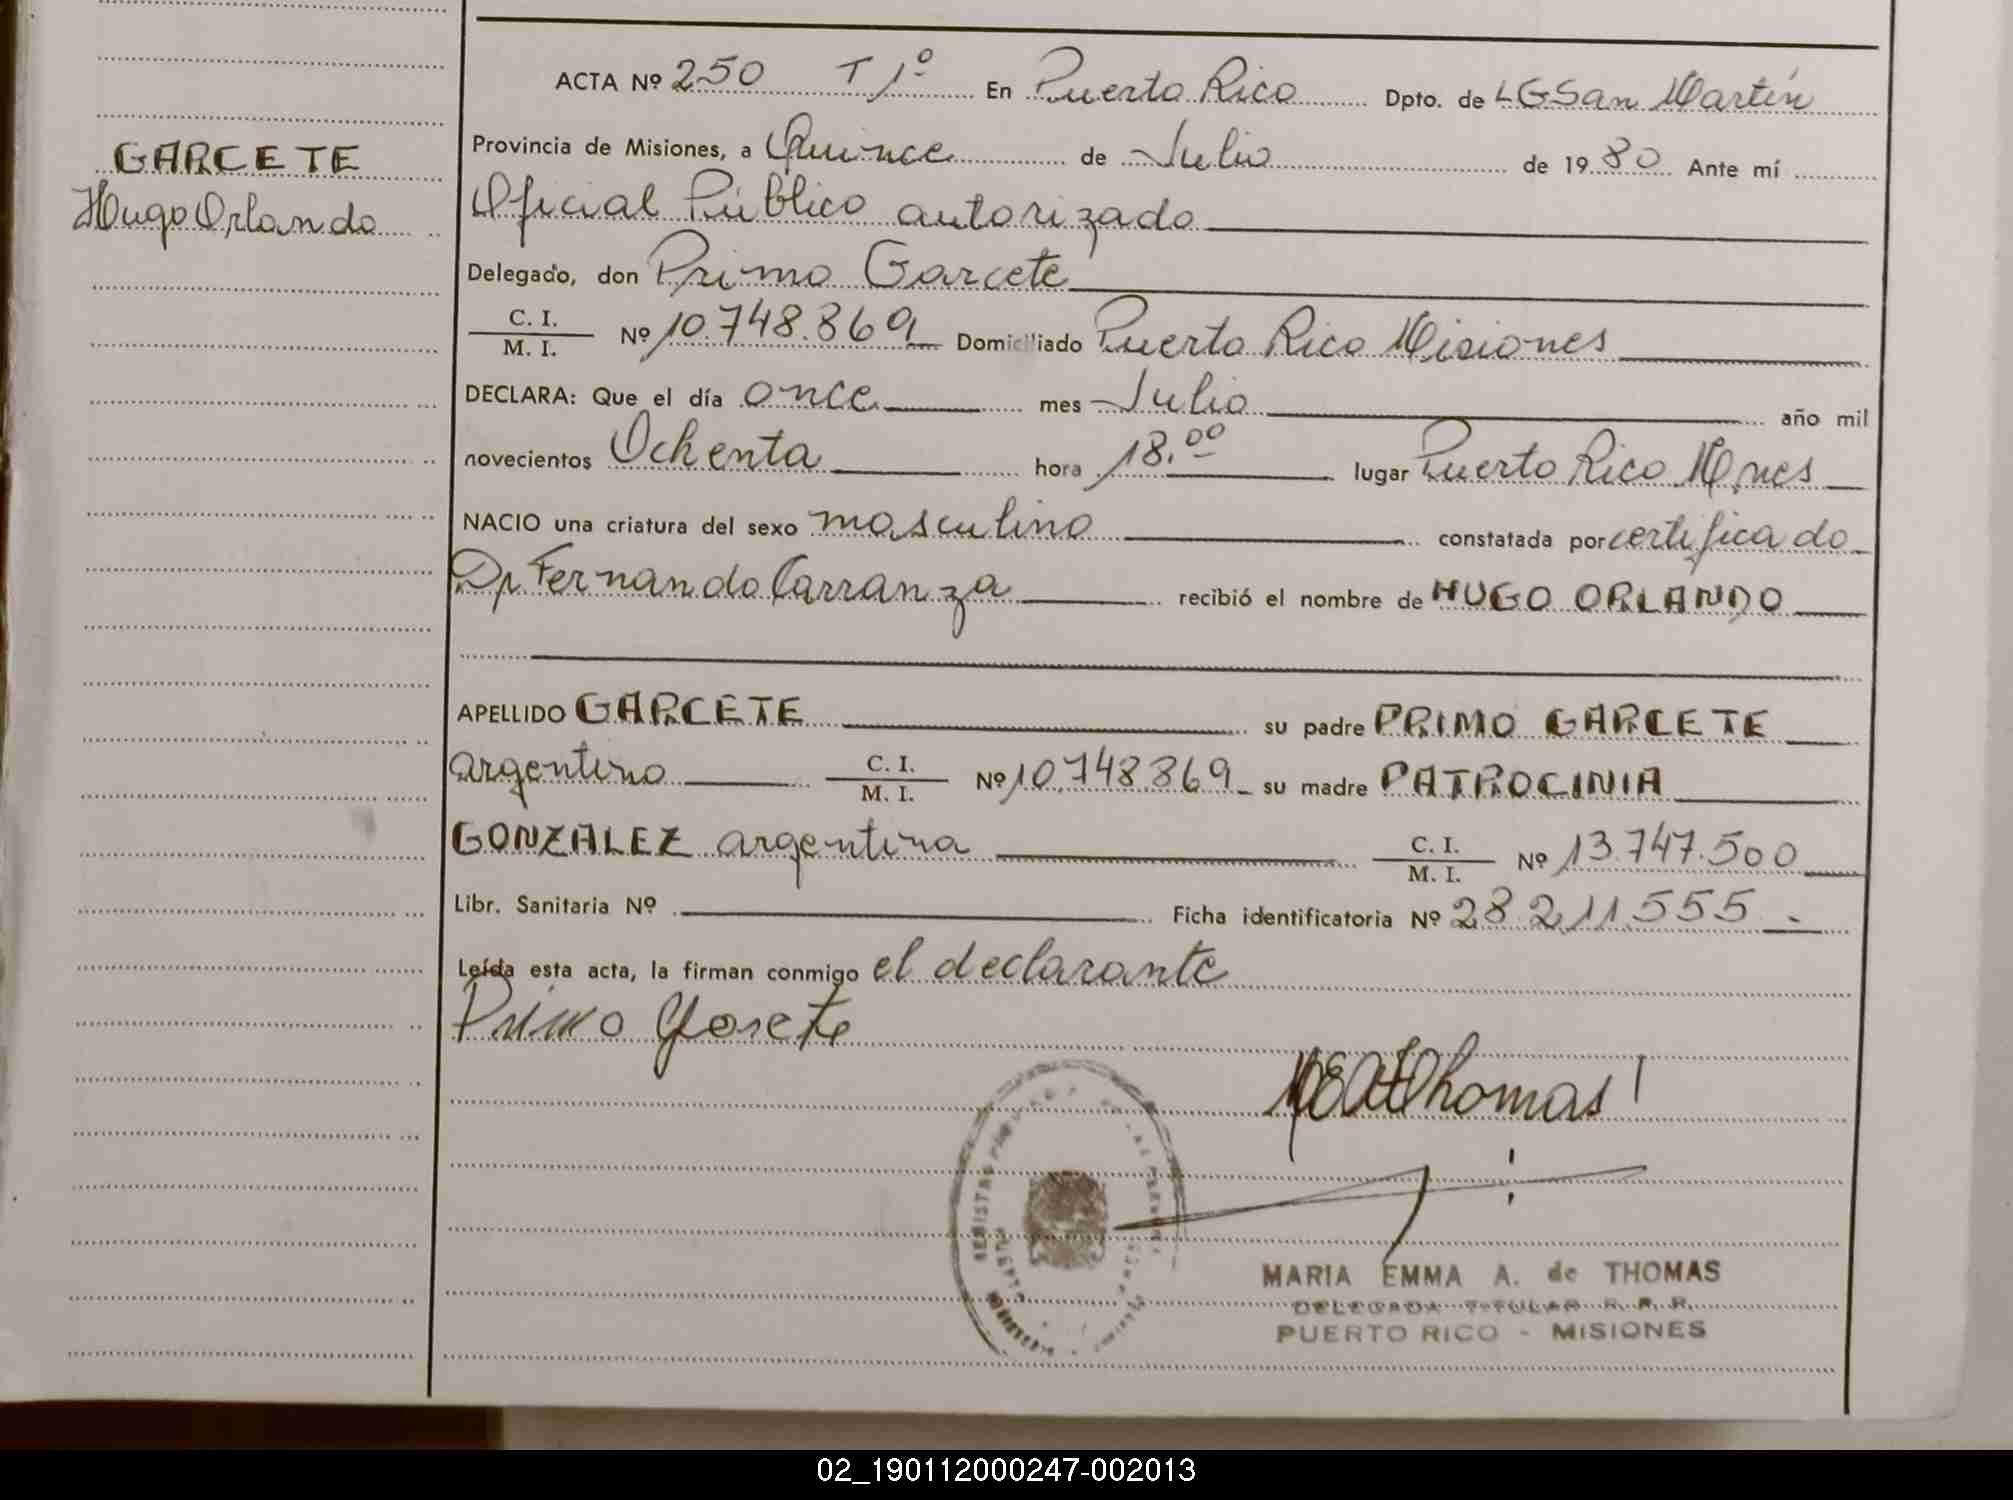 GARCETE
Hugo Orlando
ACTA Nº 250 T 1º En Puerto Rico Dpto. de LGSan Martín
Provincia de Misiones, a Quince de Julio de 1980 Ante mí
Oficial Público autorizado
Delegado, don Primo Garcete
C. I.
M. I. Nº 10.748.869 Domiciliado Puerto Rico Misiones
DECLARA: Que el día once mes Julio año mil
novecientos Ochenta hora 18.00 lugar Puerto Rico Mnes
NACIO una criatura del sexo masculino constatada por certificado
Dr Fernando Carranza recibió el nombre de HUGO ORLANDO
APELLIDO GARCETE su padre PRIMO GARCETE
argentino C. I.
M. I. Nº 10.748.869 su madre PATROCINIA
GONZALEZ argentina C. I.
M. I. Nº 13.747.500
Libr. Sanitaria Nº Ficha identificatoria Nº 28.211.555.-
Leída esta acta, la firman conmigo el declarante
Primo Garcete
MEAdThomas
MARIA EMMA A. de THOMAS
DELEGADA TITULAR R. P. P.
PUERTO RICO - MISIONES
02_190112000247-002013